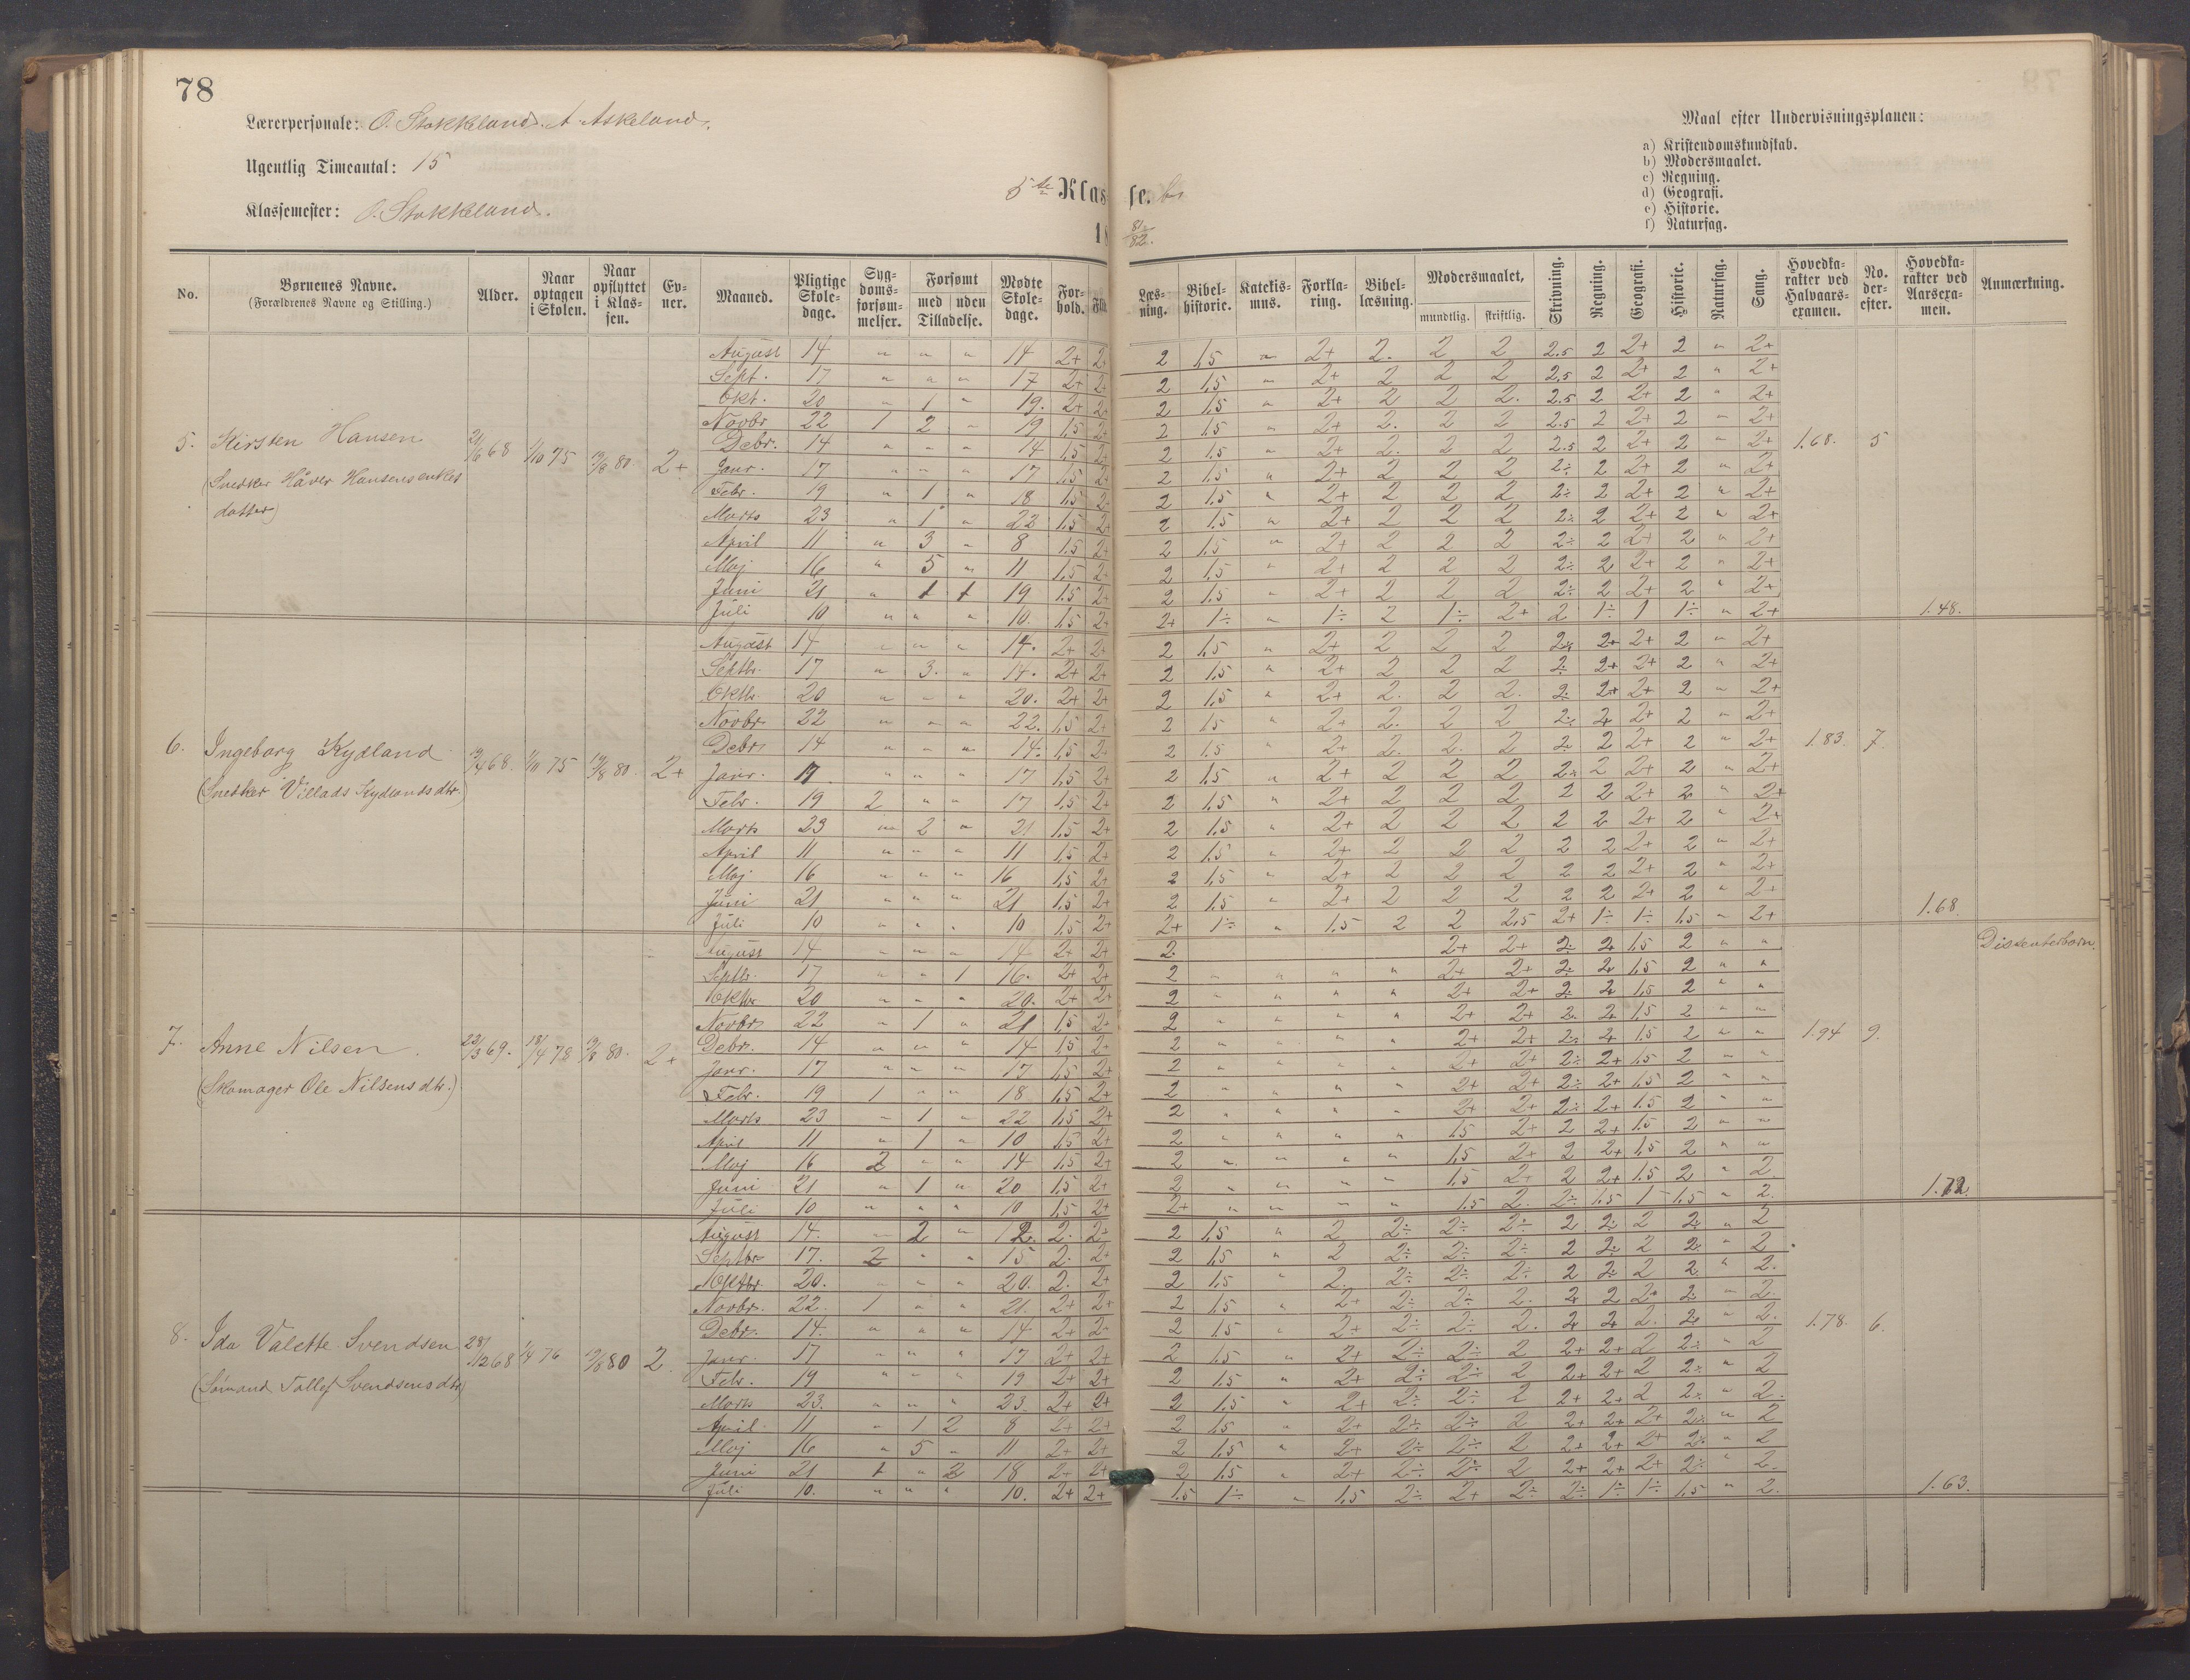 78
Lærerpersonale: O. Stokkeland. A. Askeland.
Ugentlig Timeantal: 15
Klassemester: O. Stokkeland.
5te Klasse. b.
18 81/82.
Maal efter Undervisningsplanen:
a) Kristendomskundskab.
b) Modersmaalet.
c) Regning.
d) Geografi.
e) Historie.
f) Naturfag.
No. | Børnenes Navne. (Forældrenes Navne og Stilling.) | Alder. | Naar optagen i Skolen. | Naar opflyttet i Klassen. | Evner. | Maaned. | Pligtige Skoledage. | Sygdomsforsømmelser. | Forsømt med uden Tilladelse. | Mødte Skoledage. | Forhold. | Læsning. | Bibelhistorie. | Katekismus. | Forklaring. | Bibellæsning. | Modersmaalet, mundtlig. skriftlig. | Skrivning. | Regning. | Geografi. | Historie. | Naturfag. | Sang. | Hovedkarakter ved Halvaarsexamen. | No. derefter. | Hovedkarakter ved Aarsexamen. | Anmærkning.
5. Kirsten Hansen
(Snedker Håver Hansens enkes datter)
21/6 68 1/10 75 19/8 80. 2+
August 14 " " " 14 2+ 2+ 2 1,5 " 2+ 2. 2 2 2.5 2 2+ 2 " 2+
Sept. 17 " " " 17 2+ 2+ 2 1,5 " 2+ 2 2 2 2,5 2 2+ 2 " 2+
Okt. 20 " 1 " 19. 2+ 2+ 2 1,5 " 2+ 2 2 2. 2.5 2 2+ 2 " 2+
Novbr 22 1 2 " 19 1,5 2+ 2 1.5 " 2+ 2. 2 2 2.5 2 2+ 2 " 2+
Debr. 14 " " " 14 1,5 2+ 2 1.5 " 2+ 2. 2 2 2.5 2 2+ 2 " 2+ 1.68. 5
Janr. 17 " " " 17 1,5 2+ 2 1.5 " 2+ 2 2 2 2÷ 2 2+ 2 " 2+
Febr. 19 " 1 " 18 1,5 2+ 2 1.5 " 2+ 2 2 2 2÷ 2 2+ 2 " 2+
Marts 23 " 1 " 22 1,5 2+ 2 1.5 " 2+ 2 2 2 2÷ 2 2+ 2 " 2+
April 11 " 3 " 8 1.5 2+ 2 1,5 " 2+ 2 2 2 2÷ 2 2+ 2 " 2+
Maj 16 " 5 " 11 1,5 2+ 2 1,5 " 2+ 2 2 2 2÷ 2 2+ 2 " 2+
Juni 21 " 1 1 19 1.5 2+ 2 1.5 " 2+ 2 2 2 2÷ 2 2+ 2 " 2+
Juli 10 " " " 10. 1,5 2+ 2+ 1÷ " 1÷ 2 1÷ 2+ 2 1÷ 1 1÷ " 2+ 1.48.
6. Ingeborg Kydland
(Snedker Villads Kydlands dtr.)
19/8 80. 2+
August 14 " " " 14. 2+ 2+ 2 1,5 " 2+ 2 2 2 2÷ 2+ 2+ 2 " 2+
Septbr. 17 " 3. " 14. 2+ 2+ 2 1,5 " 2+ 2 2 2 2÷ 2+ 2+ 2 " 2+
Oktbr. 20 " " " 20. 2+ 2+ 2 1,5 " 2+ 2. 2 2. 2÷ 2+ 2+ 2 " 2+
Novbr. 22 " " " 22. 1,5 2+ 2 1.5 " 2+ 2. 2 2 2÷ 2+ 2+ 2 " 2+
Debr. 14 " " " 14. 1,5 2+ 2 1.5 " 2+ 2. 2. 2 2÷ 2 2+ 2 " 2+ 1.83. 7.
Janr. 17 " " " 17 1,5 2+ 2 1,5 " 2+ 2 2 2 2÷ 2 2+ 2 " 2+
Febr. 19 2 " " 17 1,5 2+ 2 1,5 " 2+ 2 2 2 2 2 2+ 2 " 2+
Marts 23 " 2 " 21 1,5 2+ 2 1,5 " 2+ 2 2 2 2 2 2+ 2 " 2+
April 11 " " " 11 1,5 2+ 2 1.5 " 2+ 2 2 2 2 2 2+ 2 " 2+
Maj 16 " " " 16 1,5 2+ 2 1,5 " 2+ 2 2 2 2 2 2+ 2 " 2+
Juni 21 " " " 21 1,5 2+ 2 1.5 " 2+ 2 2 2 2 2 2+ 2 " 2+
Juli 10 " " " 10 1,5 2+ 2+ 1÷ " 1.5 2 2 2,5 2+ 1÷ 1÷ 1,5 " 2+ 1.68.
7. Anne Nilsen.
(Skomager Ole Nilsens dtr.)
23/3 69. 18/4 78 19/8 80. 2+
August 14 " " " 14 2+ 2+ 2. 2+ 2+ 2÷ 2+ 1,5 2 " " Dissenterbarn.
Septbr. 17 " " 1 16. 2+ 2+ 2 " " " " 2+ 2+ 2÷ 2+ 1,5 2 " "
Oktbr. 20 " " " 20. 2+ 2+ 2 " " " " 2+ 2+ 2÷ 2+ 1,5 2 " "
Novbr. 22 " 1 " 21 1,5 2+ 2 " " " " 2+ 2+ 2÷ 2+ 1.5 2 " "
Debr. 14 " " " 14 1,5 2+ 2 " " " " 2+ 2+ 2÷ 2+ 1.5 2 " " 1.94 9.
Janr. 17 " " " 17 1,5 2+ 2 " " " " 2+ 2+ 2÷ 2+ 1.5 2 " "
Febr. 19 1 " " 18 1,5 2+ 2 " " " " 2+ 2+ 2÷ 2+ 1.5 2 " "
Marts 23 " 1 " 22 1,5 2+ 2 " " " " 2+ 2+ 2÷ 2+ 1.5 2 " "
April 11 " 1 " 10 1,5 2+ 2 " " " " 1.5 2+ 2 2+ 1.5 2 " "
Maj 16 2 " " 14 1.5 2+ 2 " " " " 1,5 2+ 2 2+ 1,5 2 " "
Juni 21 " 1 " 20 1.5 2+ 2 " " " " 1.5 2+ 2 2+ 1.5 2 " 2
Juli 10 " " " 10 1.5 2+ 2+ " " " " 1.5 2. 2÷ 1.5 1 1.5 " 2.
8. Ida Valette Svendsen
(Sømand Tallef Svendsens dtr)
28/12 68 1/4 76 19/8 80 2.
August 14. " 2 " 12. 2. 2+ 2 1,5 " 2 2÷ 2÷ 2÷ 2 2÷ 2 2÷ " 2
Septbr. 17. 2 " " 15 2. 2+ 2 1,5 " 2 2÷ 2÷ 2÷ 2 2÷ 2 2÷ " 2
Oktbr. 20. " " " 20. 2. 2+ 2 1.5 " 2. 2÷ 2÷ 2÷ 2 2÷ 2 2. " 2.
Novbr. 22. 1 " " 21. 2+ 2+ 2 1,5 " 2+ 2÷ 2÷ 2. 2+ 2 2 2÷ " 2.
Debr. 14. " " " 14 2+ 2+ 2 1.5 " 2+ 2÷ 2÷ 2. 2+ 2+ 2. 2÷ " 2. 1.78. 6.
Janr. 17 " " " 17 2+ 2+ 2 1.5 " 2+ 2÷ 2÷ 2 2+ 2+ 2 2÷ " 2
Febr. 19 " " " 19 2+ 2+ 2 1.5 " 2+ 2÷ 2÷ 2 2+ 2+ 2 2÷ " 2
Marts 23. " " " 23. 2+ 2+ 2 1.5 " 2+ 2÷ 2÷ 2 2+ 2+ 2 2÷ " 2.
April 11 " 1 2 8 2+ 2+ 2 1.5 " 2+ 2÷ 2÷ 2 2+ 2+ 2+ 2÷ " 2
Maj 16 " 5 " 11 2+ 2+ 2 1,5 " 2+ 2÷ 2÷ 2 2+ 2+ 2+ 2÷ " 2
Juni 21 1 " 2 18 2+ 2+ 2 1.5 " 2+ 2÷ 2÷ 2 2+ 2+ 2+ 2÷ " 2.
Juli 10. " " " 10. 2+ 2+ 1.5 1÷ " 1.5 2÷ 2+ 2÷ 2÷ 1÷ 1÷ 1,5 " 2. 1.63.